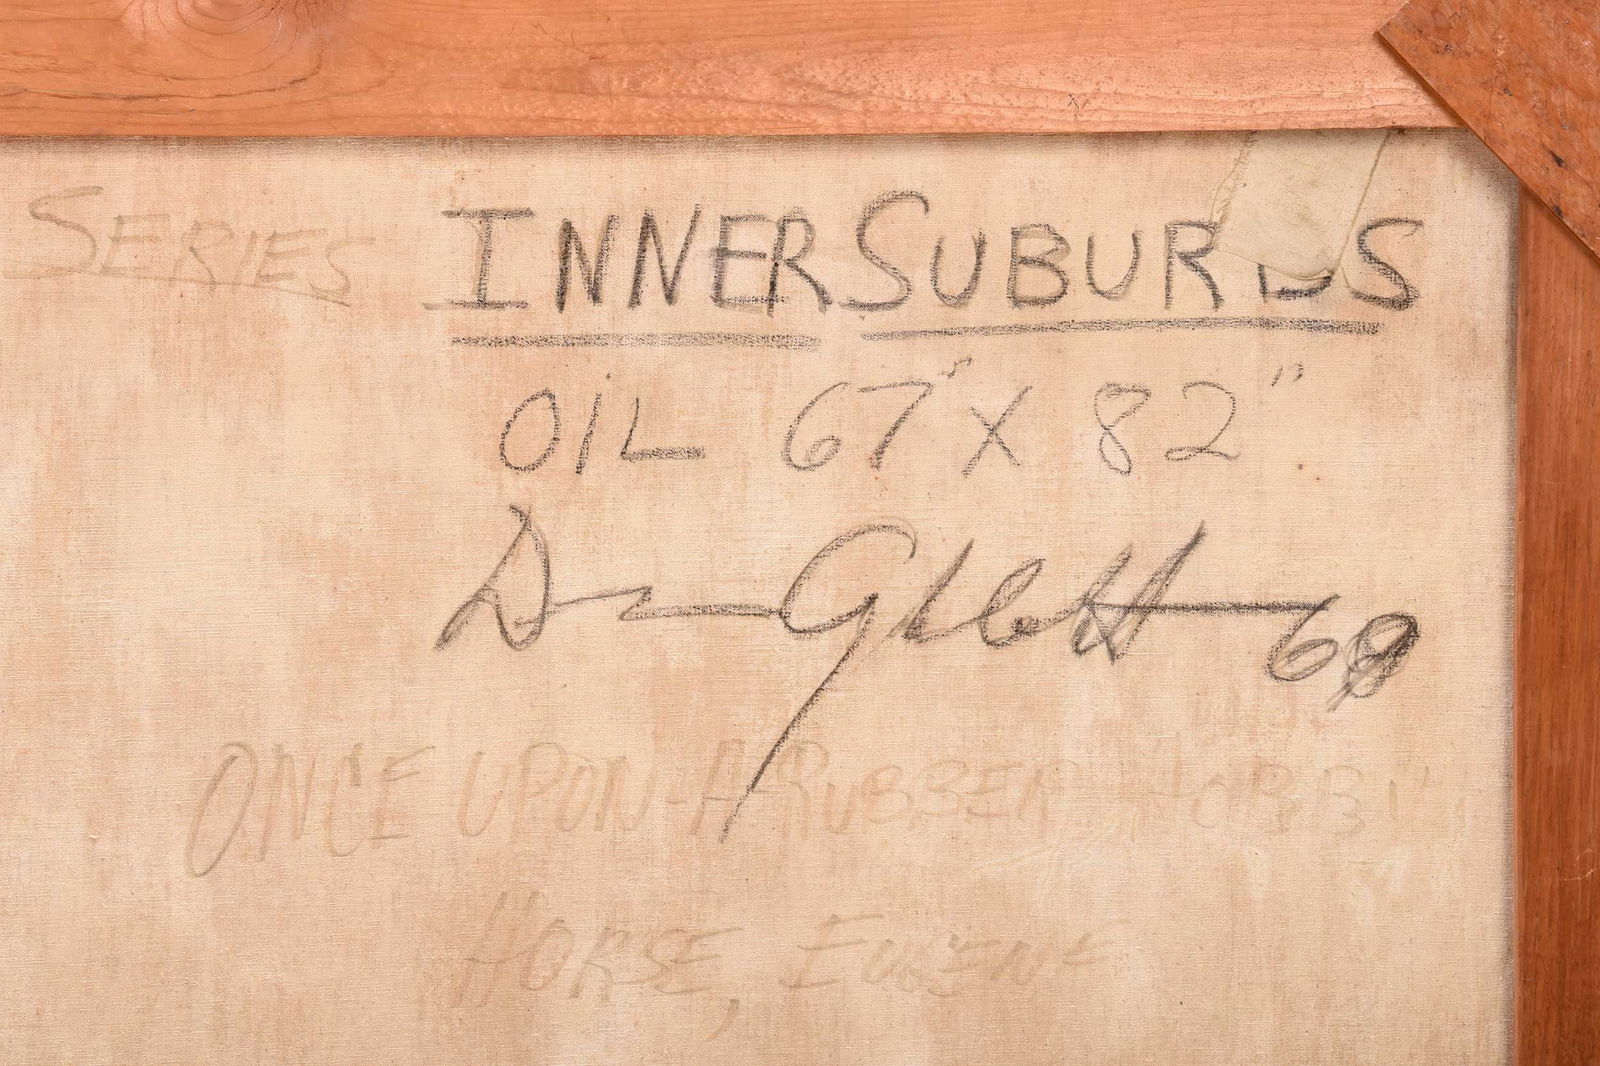 SERIES INNER SUBURBS
OIL 67" X 82"
69
ONCE UPON-A-RUBBER HOBBY
HORSE, EUGENE